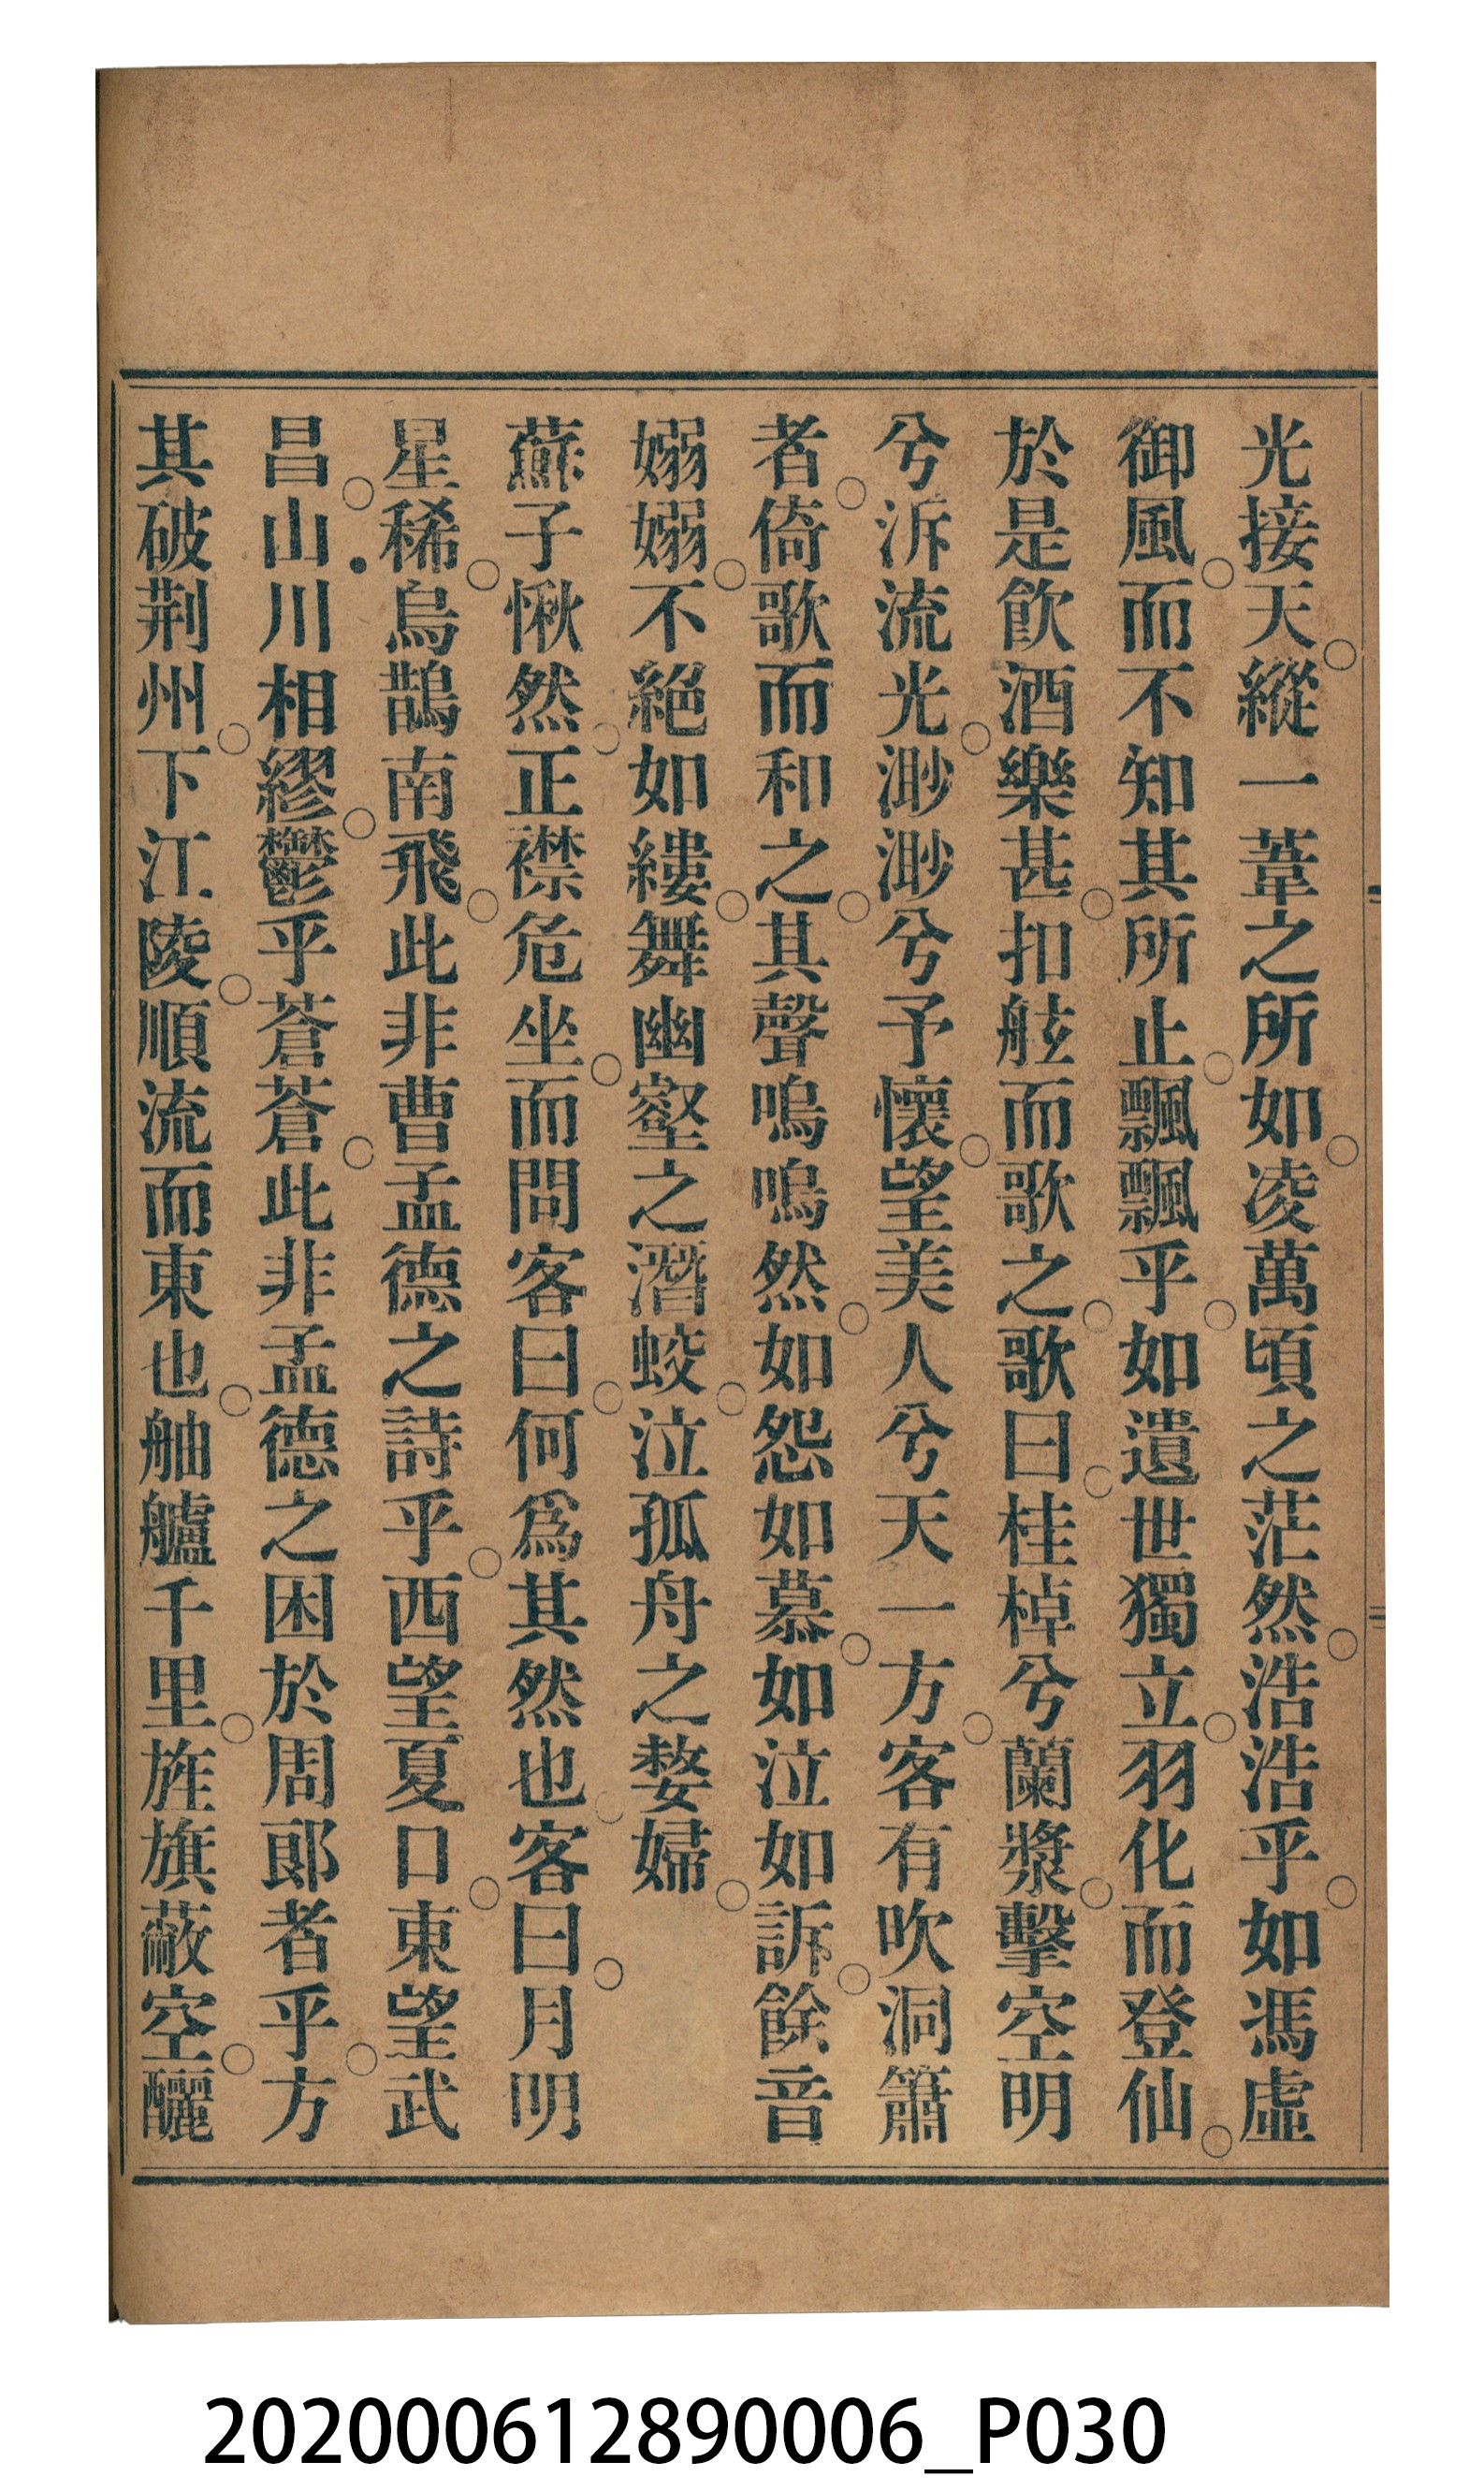 光接天縱一葦之所如凌萬頃之茫然浩浩乎如馮虛
御風而不知其所止飄飄乎如遺世獨立羽化而登仙
於是飲酒樂甚扣舷而歌之歌曰桂棹兮蘭槳擊空明
兮泝流光渺渺兮予懷望美人兮天一方客有吹洞簫
者倚歌而和之其聲嗚嗚然如怨如慕如泣如訴餘音
嫋嫋不絕如縷舞幽壑之潛蛟泣孤舟之嫠婦
蘇子愀然正襟危坐而問客曰何爲其然也客曰月明
星稀烏鵲南飛此非曹孟德之詩乎西望夏口東望武
昌山川相繆鬱乎蒼蒼此非孟德之困於周郎者乎方
其破荆州下江陵順流而東也舳艫千里旌旗蔽空釃
202000612890006_P030